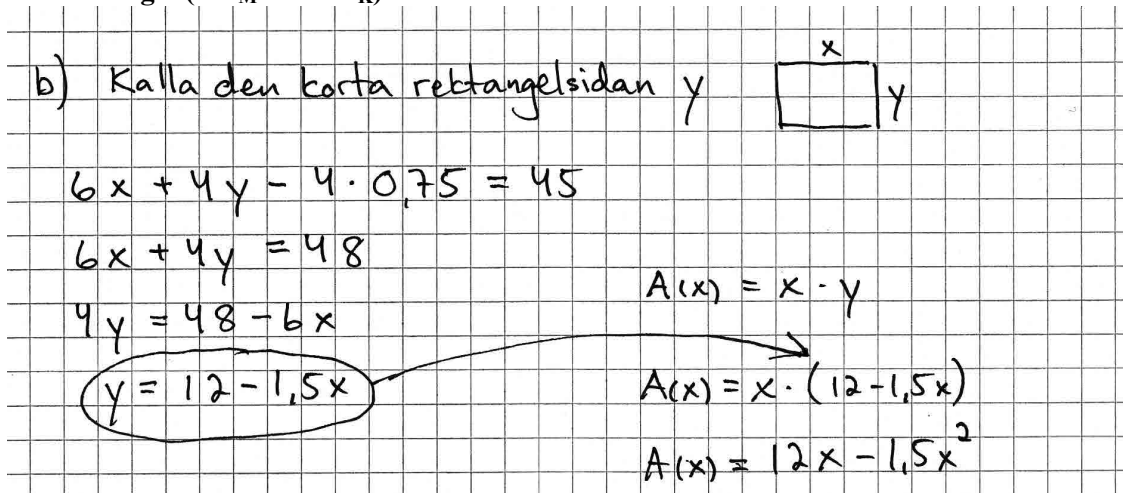 b) Kalla den korta rektangelsidan y
x
y
6x + 4y - 4·0,75 = 45
6x + 4y = 48
4y = 48 - 6x
y = 12 - 1,5x
A(x) = x · y
A(x) = x · (12 - 1,5x)
A(x) = 12x - 1,5x²